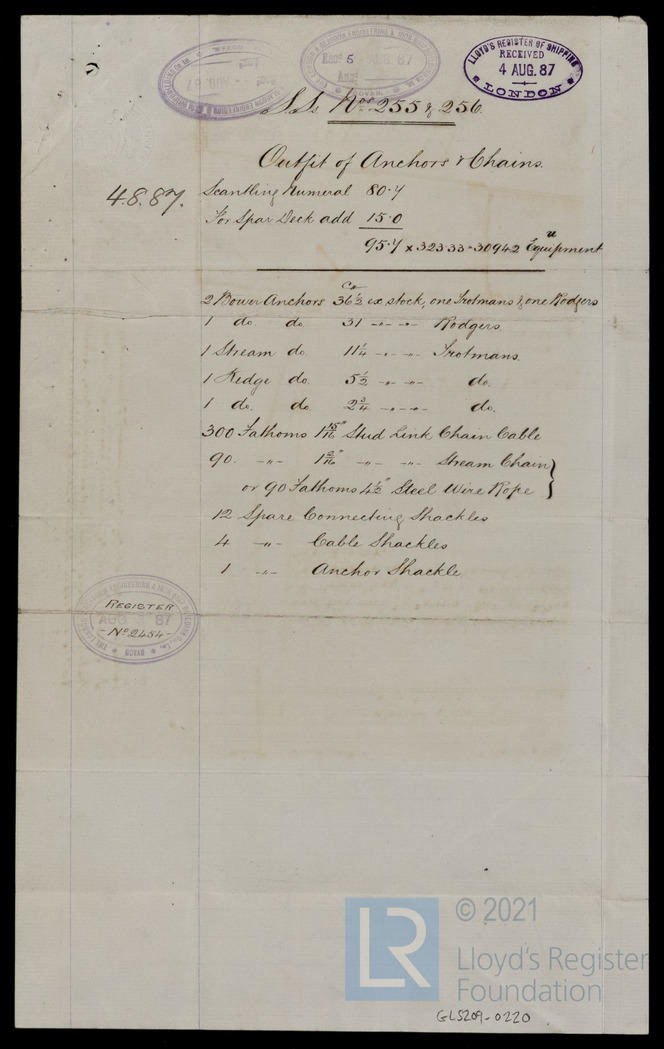 LLOYD'S REGISTER OF SHIPPING
RECEIVED
4 AUG. 87
LONDON
S.S. Nos 255 & 256.
Outfit of Anchors & Chains.
4.8.87.
Scantling Numeral 80.7
For Spar Deck add 15.0
95.7 x 323.33 = 30942 Equipment
2 Bower Anchors 36½ ex stock, one Trotmans & one Rodgers
1 do. do. 31 -„- -„- Rodgers.
1 Stream do. 11¼ -„- -„- Trotmans.
1 Kedge do. 5½ -„- -„- do.
1 do. do. 2¾ -„- -„- do.
300 Fathoms 1 15/16" Stud Link Chain Cable
90 -„- 1 3/16" -„- -„- Stream Chain
or 90 Fathoms 4½" Steel Wire Rope
12 Spare Connecting Shackles
4 -„- Cable Shackles
1 -„- Anchor Shackle
REGISTER
AUG 87
No 2454
LR
© 2021
Lloyd's Register
Foundation
GLS209-0220